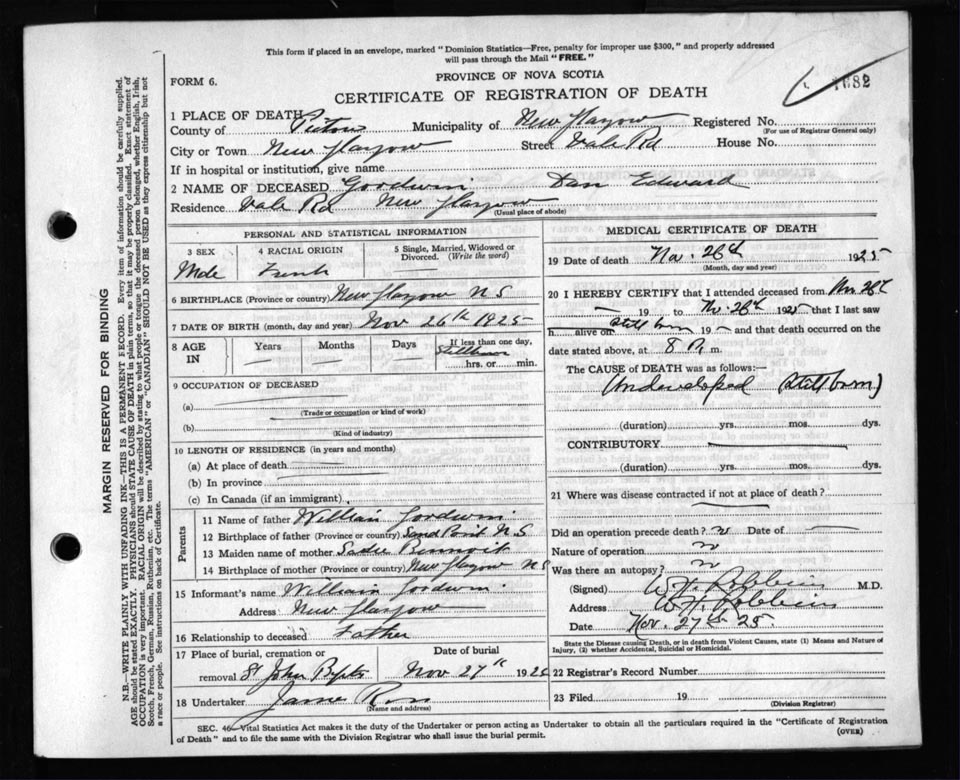 This form if placed in an envelope, marked "Dominion Statistics—Free, penalty for improper use $300," and properly addressed
will pass through the Mail "FREE."
PROVINCE OF NOVA SCOTIA
FORM 6.
CERTIFICATE OF REGISTRATION OF DEATH
1 PLACE OF DEATH
County of Pictou Municipality of New Glasgow Registered No.
(For use of Registrar General only)
City or Town New Glasgow Street Vale Rd House No.
If in hospital or institution, give name
2 NAME OF DECEASED Goodwin Dan Edward
Residence Vale Rd New Glasgow
(Usual place of abode)
PERSONAL AND STATISTICAL INFORMATION
3 SEX 4 RACIAL ORIGIN 5 Single, Married, Widowed or
Divorced. (Write the word)
Male French
6 BIRTHPLACE (Province or country) New Glasgow N S
7 DATE OF BIRTH (month, day and year) Nov 26th 1925
8 AGE IN Years Months Days If less than one day,
Stillborn
hrs. or min.
9 OCCUPATION OF DECEASED
(a)
(Trade or occupation or kind of work)
(b)
(Kind of industry)
10 LENGTH OF RESIDENCE (in years and months)
(a) At place of death
(b) In province
(c) In Canada (if an immigrant)
Parents
11 Name of father William Goodwin
12 Birthplace of father (Province or country) Sand Point N.S
13 Maiden name of mother Sadie
14 Birthplace of mother (Province or country) New Glasgow NS
15 Informant's name William Goodwin
Address New Glasgow
16 Relationship to deceased Father
17 Place of burial, cremation or Date of burial
removal St John Nov 27th 1925
18 Undertaker James Ross
(Name and address)
MEDICAL CERTIFICATE OF DEATH
19 Date of death 1925
(Month, day and year)
20 I HEREBY CERTIFY that I attended deceased from
19 to 1925 that I last saw
h alive on Still born 19 and that death occurred on the
date stated above, at 8 m.
The CAUSE of DEATH was as follows:—
Undeveloped (Stillborn)
(duration) yrs. mos. dys.
CONTRIBUTORY
(duration) yrs. mos. dys.
21 Where was disease contracted if not at place of death?
Did an operation precede death? Date of
Nature of operation
Was there an autopsy?
(Signed) M.D.
Address
Date Nov. 27 25
State the Disease causing Death, or in death from Violent Causes, state (1) Means and Nature of
Injury, (2) whether Accidental, Suicidal or Homicidal.
22 Registrar's Record Number
23 Filed 19
(Division Registrar)
SEC. 46—Vital Statistics Act makes it the duty of the Undertaker or person acting as Undertaker to obtain all the particulars required in the "Certificate of Registration
of Death" and to file the same with the Division Registrar who shall issue the burial permit.
(OVER)
MARGIN RESERVED FOR BINDING
N.B.—WRITE PLAINLY WITH UNFADING INK—THIS IS A PERMANENT RECORD. Every item of information should be carefully supplied.
AGE should be stated EXACTLY. PHYSICIANS should STATE CAUSE OF DEATH in plain terms, so that it may be properly classified. Exact statement of
OCCUPATION is very important. RACIAL ORIGIN will be described by stating to what people or tongue the deceased person belonged, whether English, Irish,
Scotch, French, German, Russian, Ruthenian, etc. The terms "AMERICAN" or "CANADIAN" SHOULD NOT BE USED as they express citizenship but not
a race or people. See instructions on back of Certificate.